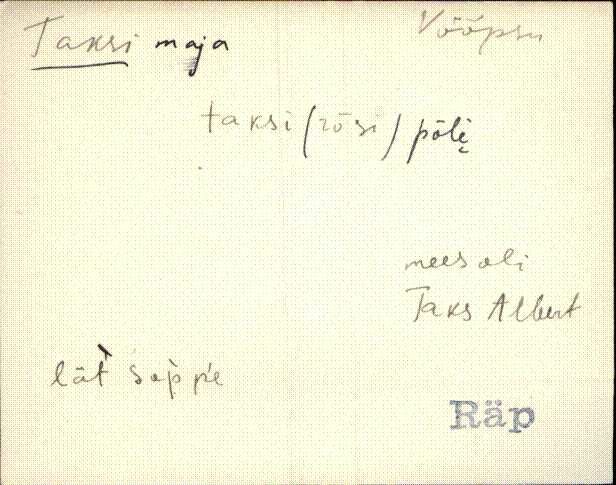 Taksi maja
Vööpsu
taksi (rõsi) põlį
mees oli
Taks Albert
lät̀ śap̀pe
Räp